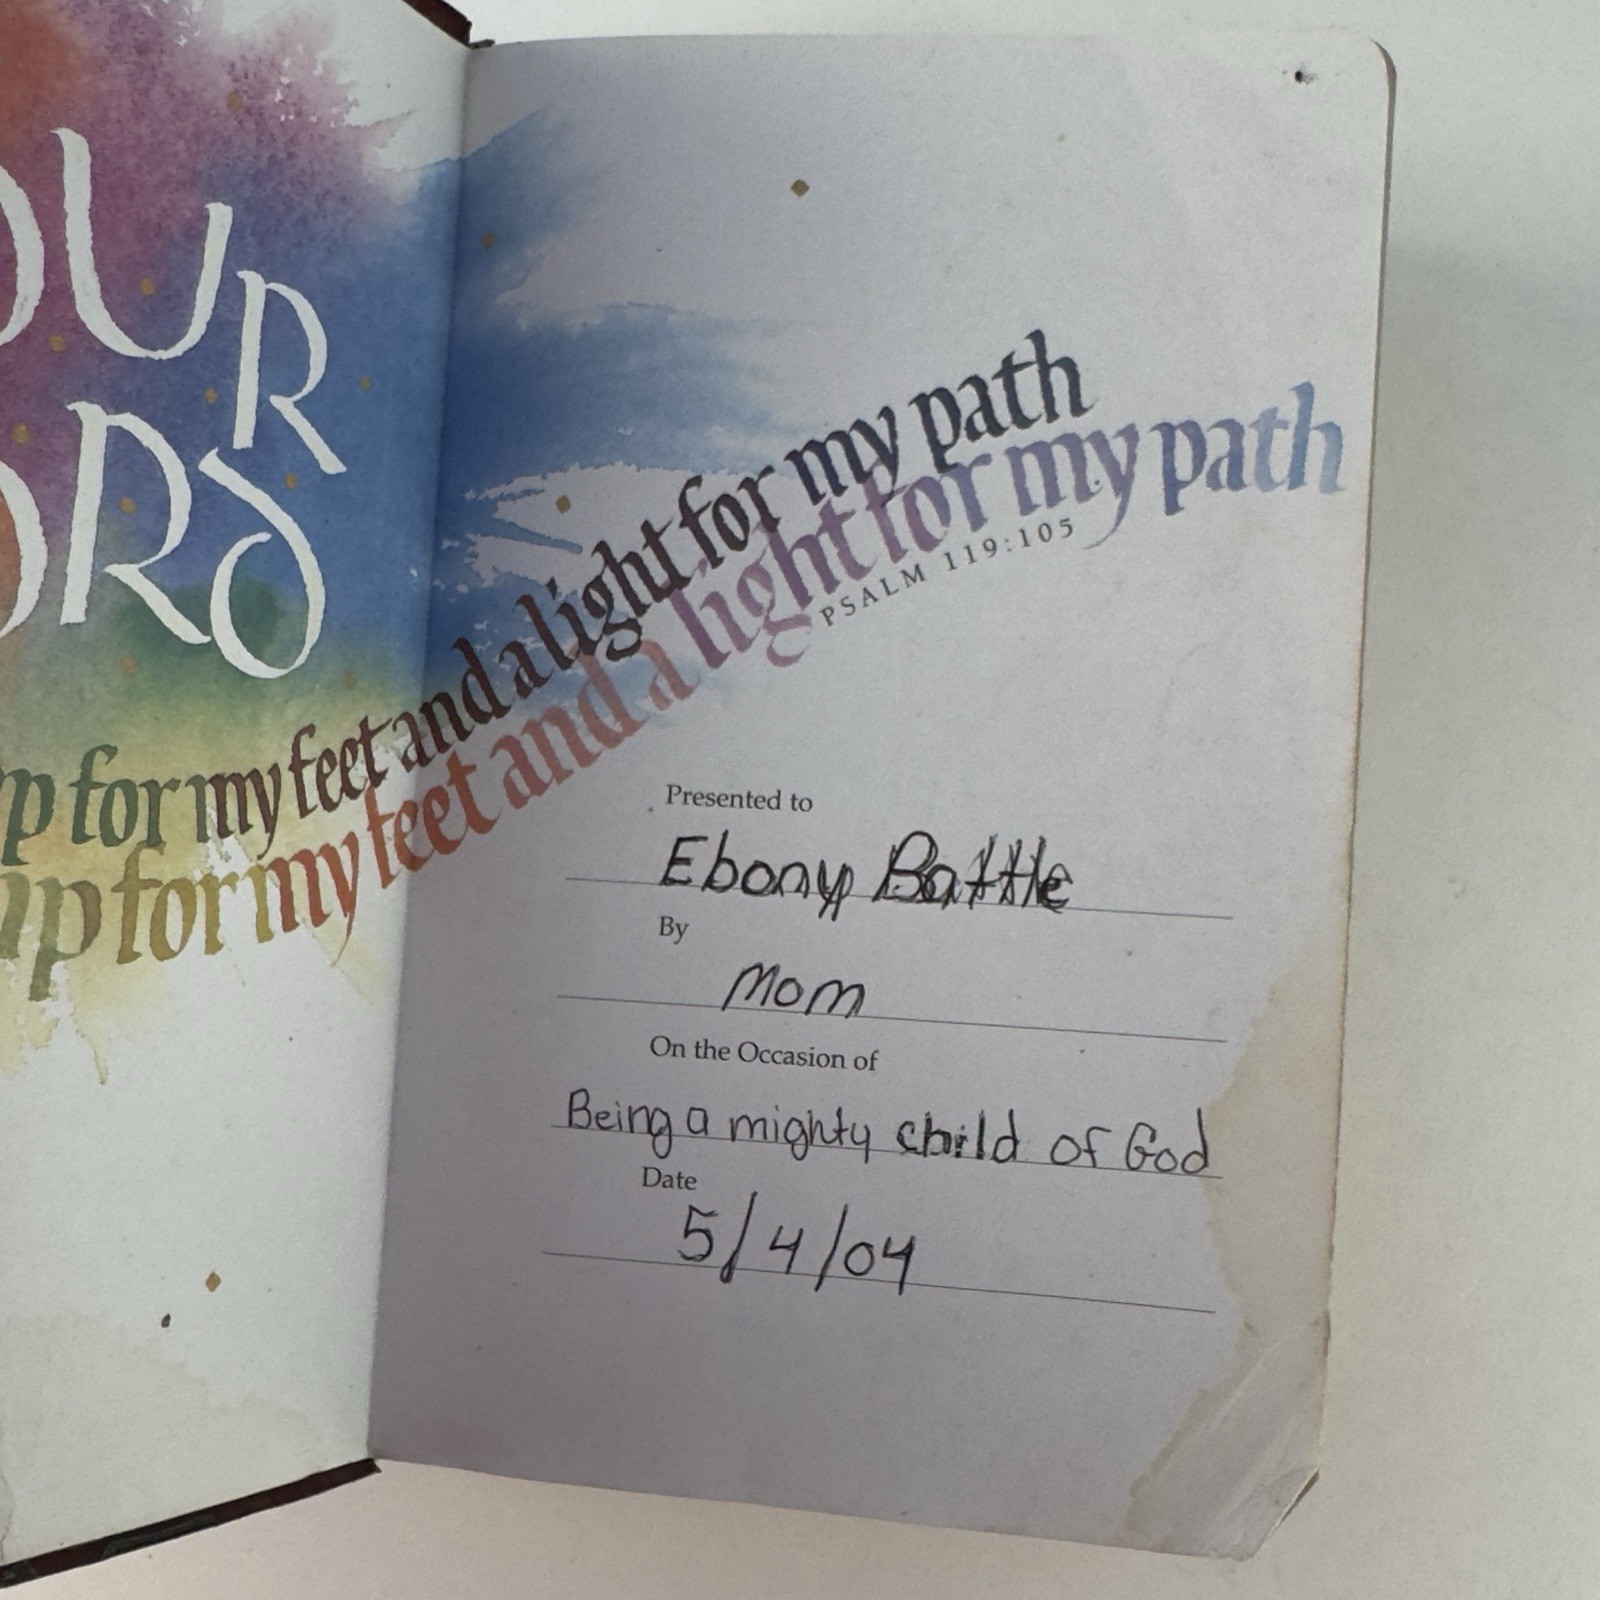 OUR
ORD
p for my feet and a light for my path
up for my feet and a light for my path
PSALM 119:105
Presented to
Ebony Battle
By
Mom
On the Occasion of
Being a mighty child of God
Date
5/4/04